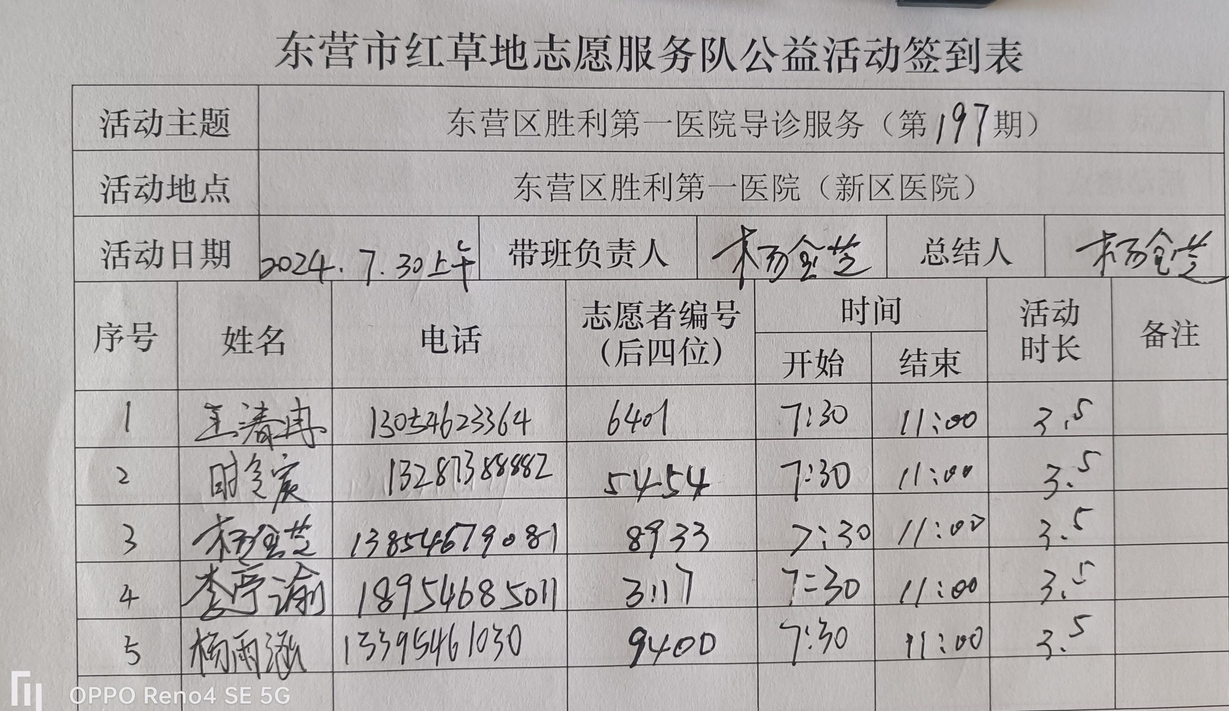 东营市红草地志愿服务队公益活动签到表
活动主题 东营区胜利第一医院导诊服务（第197期）
活动地点 东营区胜利第一医院（新区医院）
活动日期 2024.7.30上午 带班负责人 杨金芝 总结人 杨金芝
序号 姓名 电话 志愿者编号（后四位） 时间 开始 结束 活动时长 备注
1 13054623364 6401 7:30 11:00 3.5
2 13287388882 5454 7:30 11:00 3.5
3 杨金芝 13854679081 8933 7:30 11:00 3.5
4 李亭谕 18954685011 3117 7:30 11:00 3.5
5 杨雨涵 13395461030 9400 7:30 11:00 3.5
OPPO Reno4 SE 5G